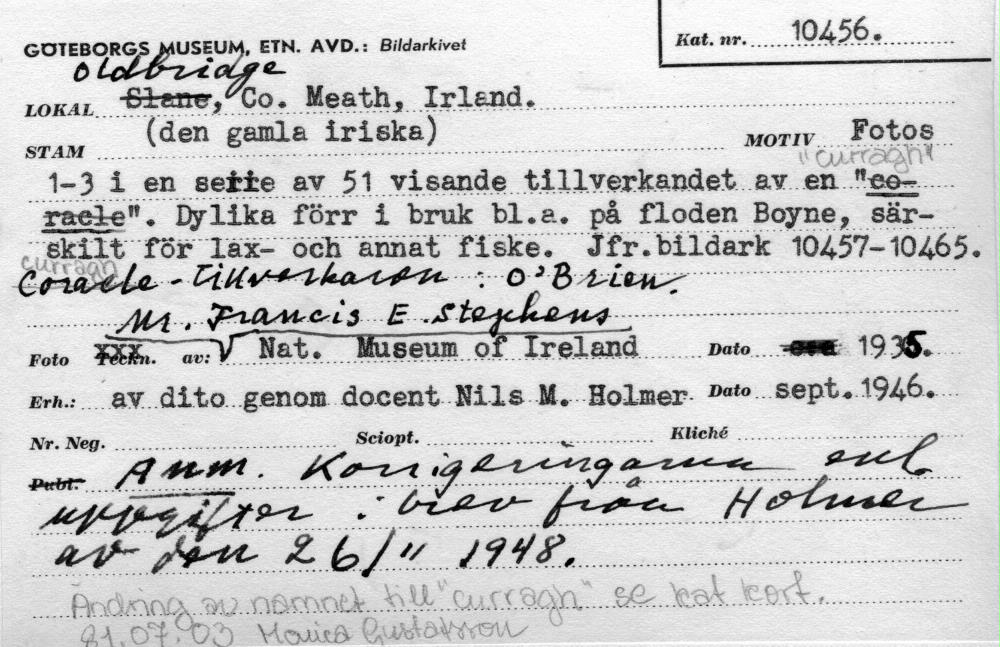 Kat. nr. 10456.
GÖTEBORGS MUSEUM, ETN. AVD.: Bildarkivet
Oldbridge
LOKAL Slane, Co. Meath, Irland.
(den gamla iriska)
STAM MOTIV Fotos
"curragh"
1-3 i en serie av 51 visande tillverkandet av en "co-
racle". Dylika förr i bruk bl.a. på floden Boyne, sär-
skilt för lax- och annat fiske. Jfr.bildark 10457-10465.
curragh
Coracle-tillverkaren: O'Brien.
Mr. Francis E. Stephens
Foto Teckn. av: Nat. Museum of Ireland Dato 1935.
Erh.: av dito genom docent Nils M. Holmer Dato sept. 1946.
Nr. Neg. Sciopt. Kliché
Publ. Anm. Korrigeringarna enl.
uppgifter i brev från Holmer
av den 26/11 1948.
Ändring av namnet till "curragh" se kat kort.
81.07.03 Monica Gustafsson